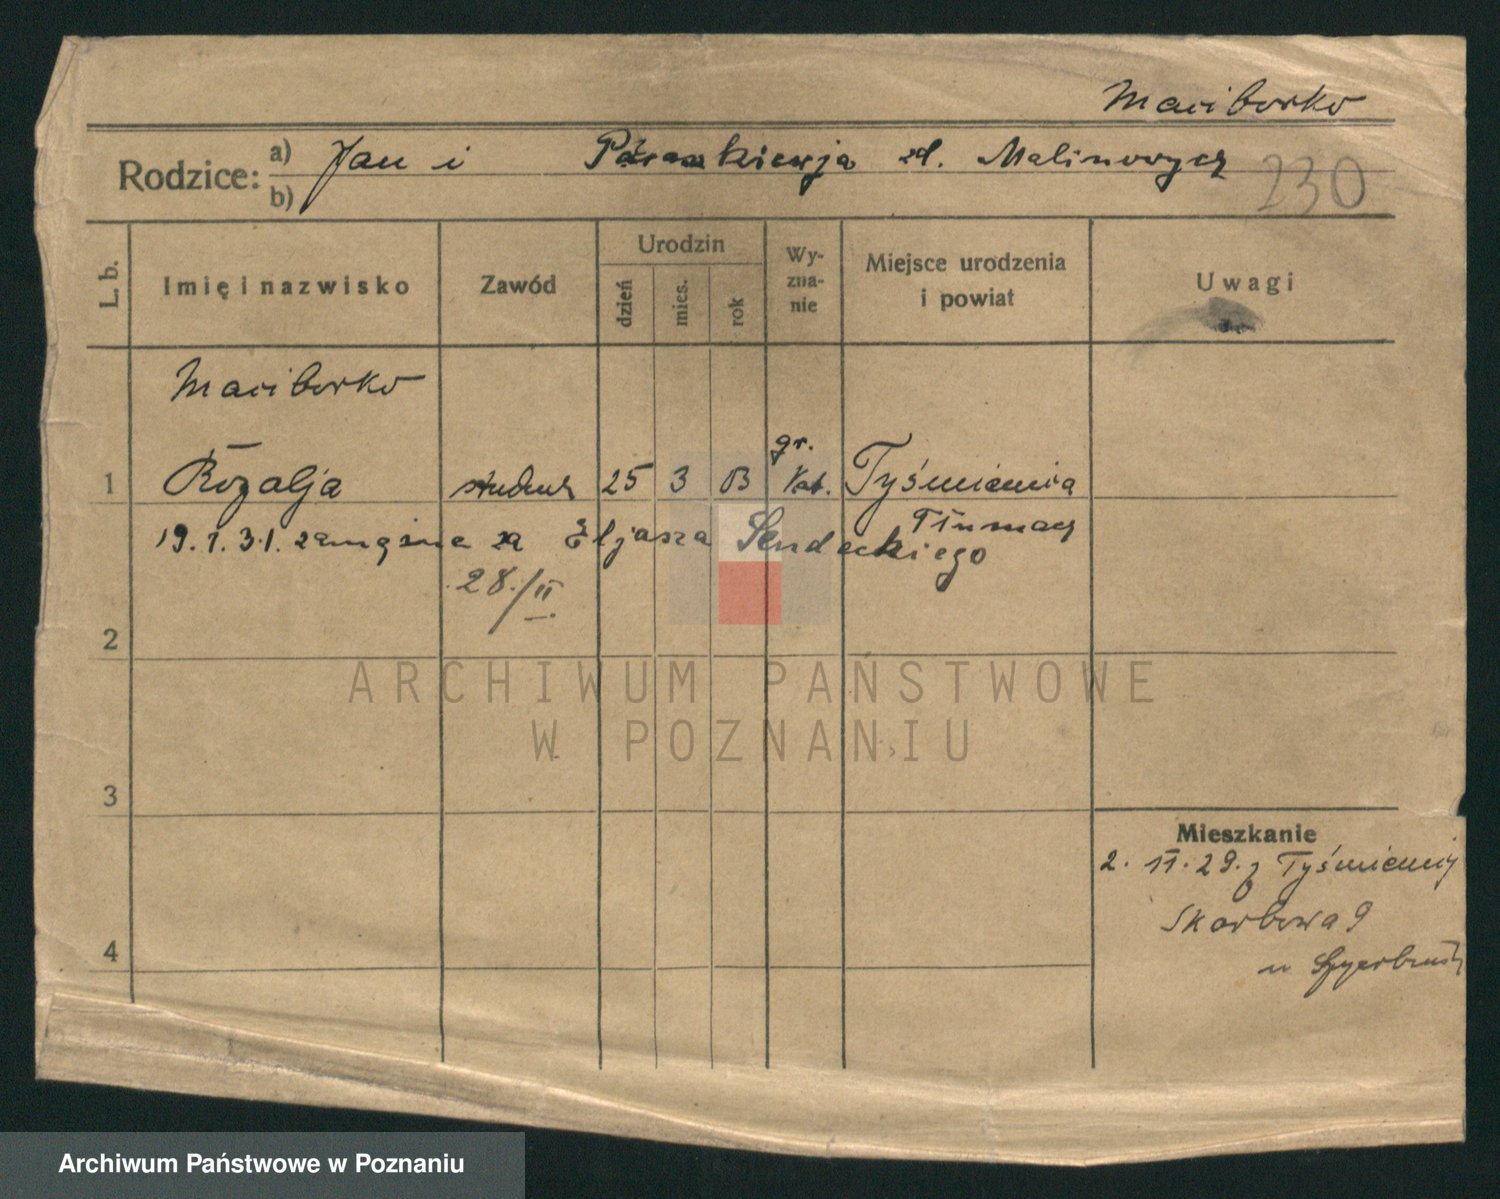 Maciborko
Rodzice: a) Jan i Paraskiewja zd. Malinowycz
b)
230
L. b. Imię i nazwisko Zawód Urodzin dzień mies. rok Wy-zna-nie Miejsce urodzenia i powiat Uwagi
Maciborko
1 Rozalja 25 3 03 gr. kat. Tyśmienica
Tłumacz
19.1.31. zamężna za Eljasza Sendeckiego
28./II
2
ARCHIWUM PAŃSTWOWE
W POZNANIU
3
Mieszkanie
2. II. 29. z Tyśmienicy
Skarbowa 9
4
u
Archiwum Państwowe w Poznaniu